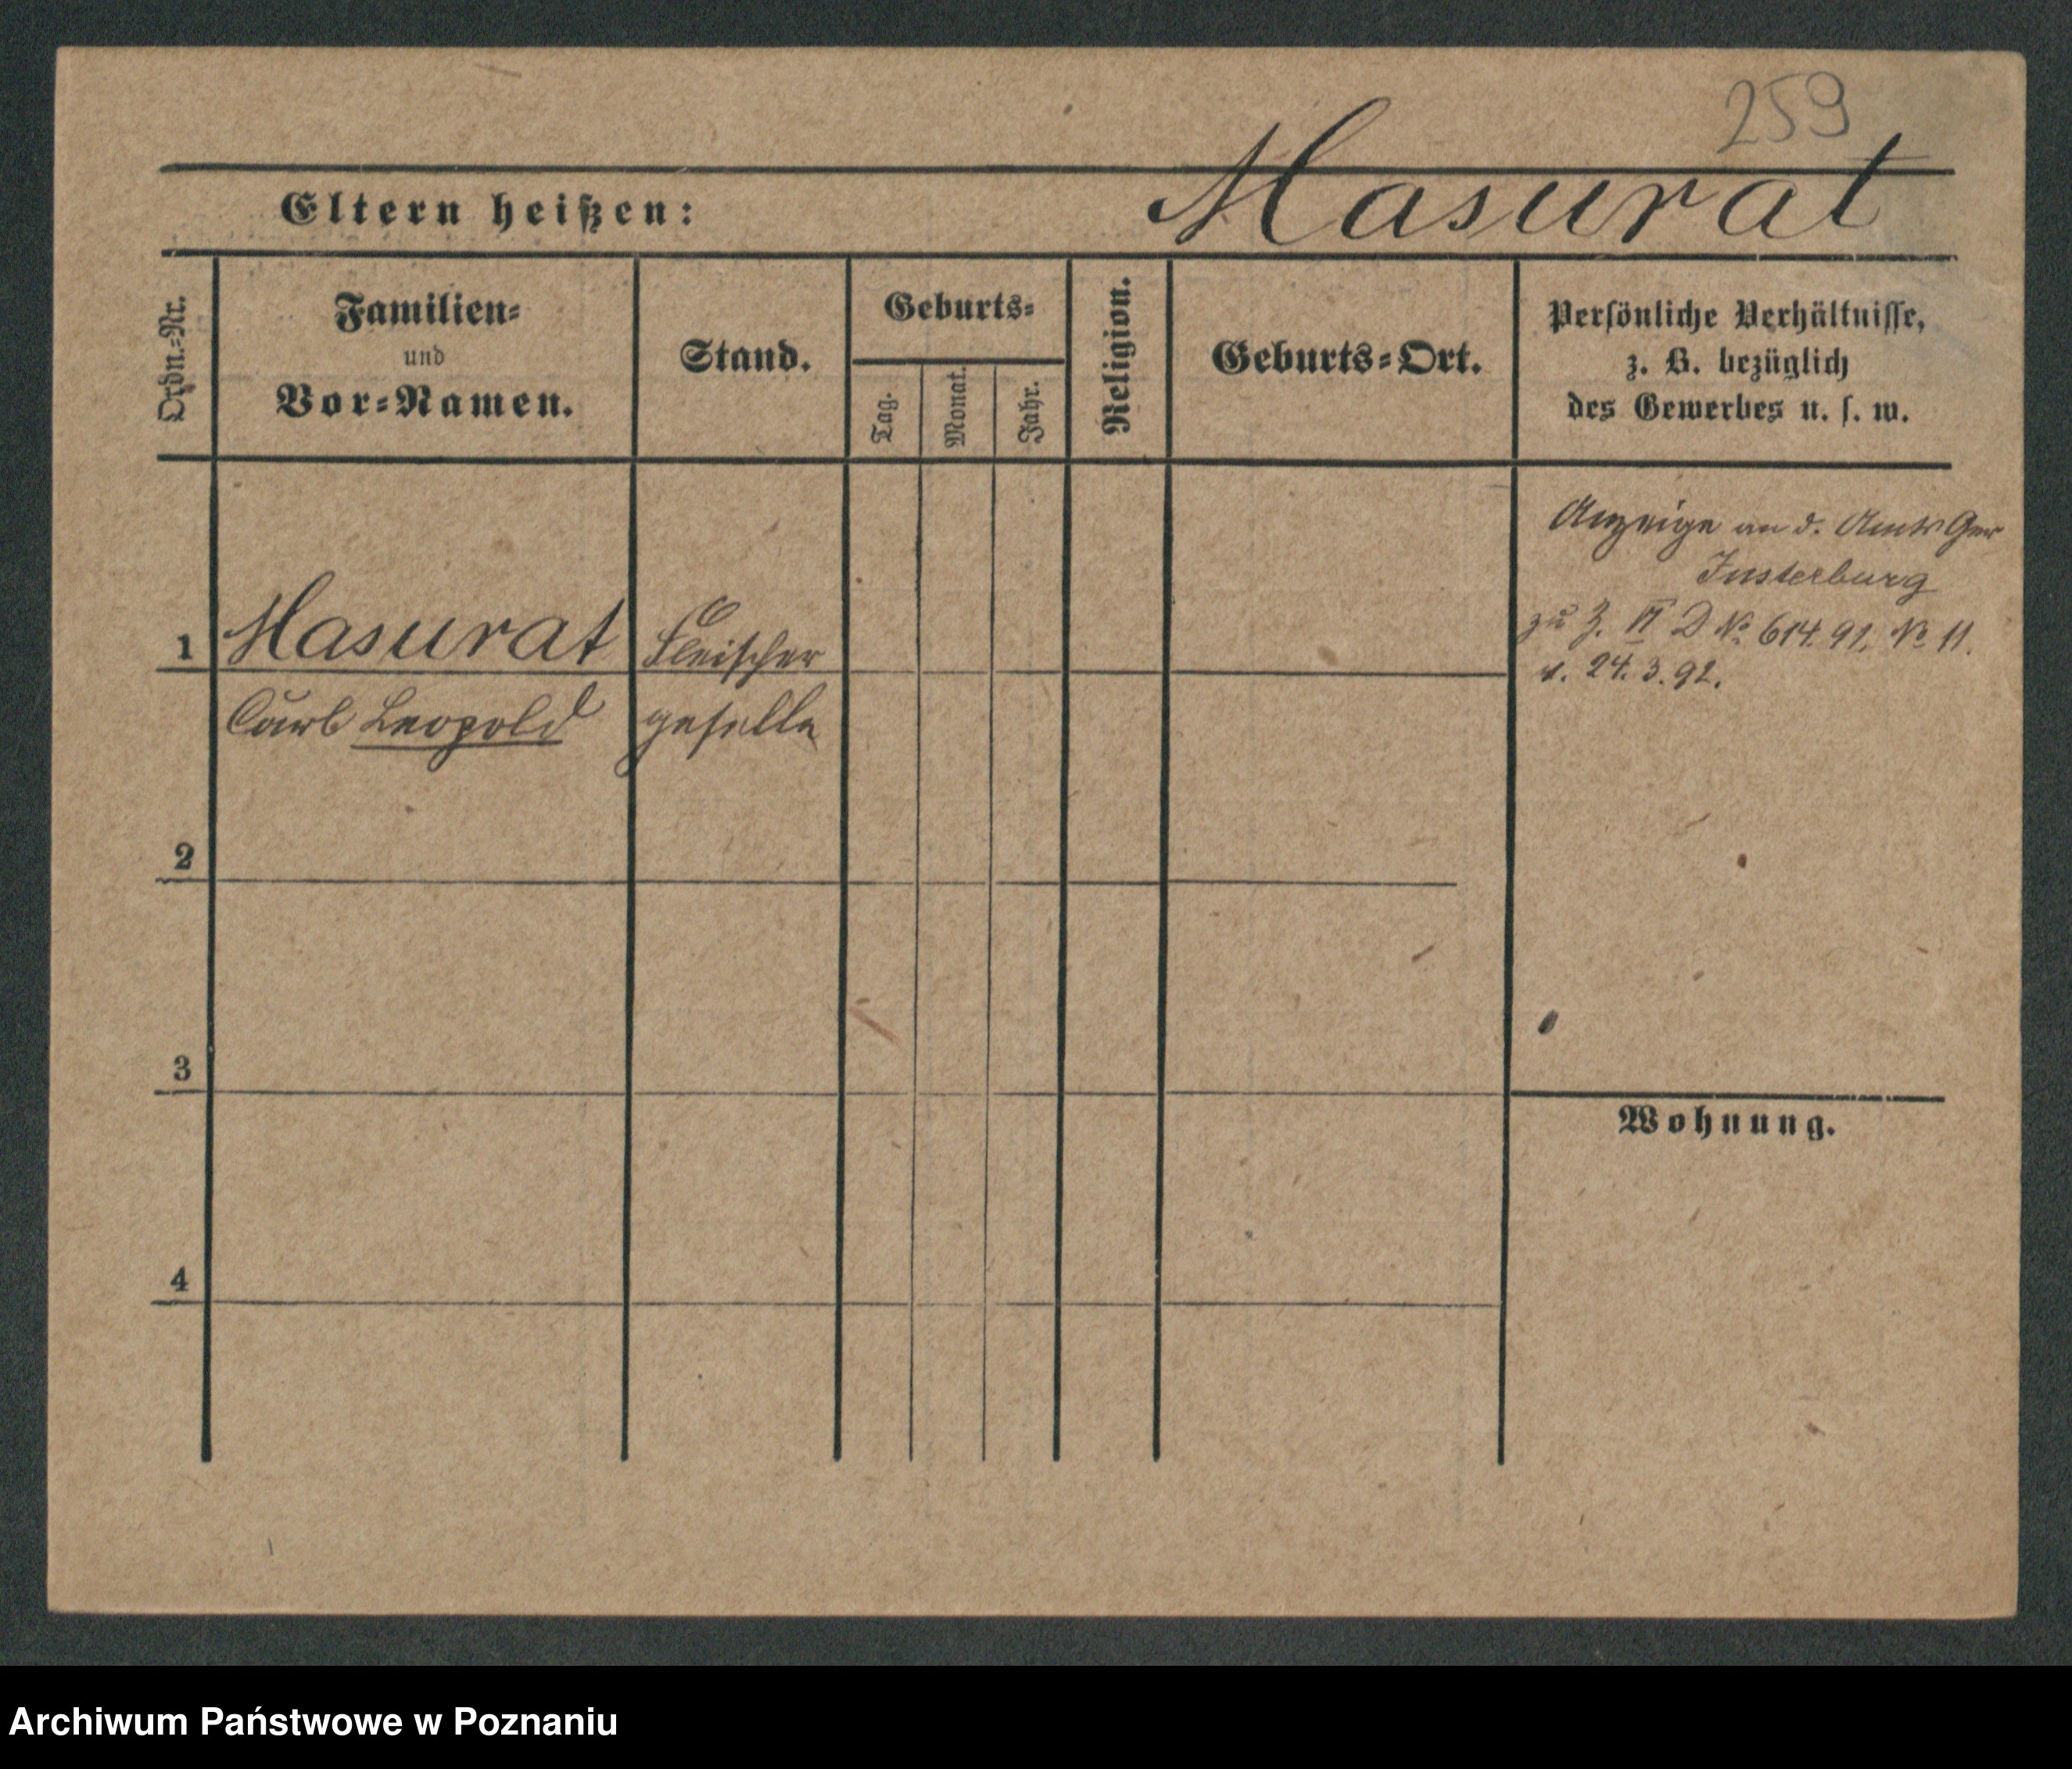 259
Eltern heißen: Masurat
Ordn.-Nr.
Familien-
und
Vor-Namen.
Stand.
Geburts-
Tag.
Monat.
Jahr.
Religion.
Geburts-Ort.
Persönliche Verhältnisse,
z. B. bezüglich
des Gewerbes u. s. w.
1 Masurat Fleischer
Carl Leopold geselle
Anzeige an d. Amts Ger
Insterburg
zu J. VI D № 614. 91. № 11.
v. 24. 3. 92.
2
3
Wohnung.
4
Archiwum Państwowe w Poznaniu